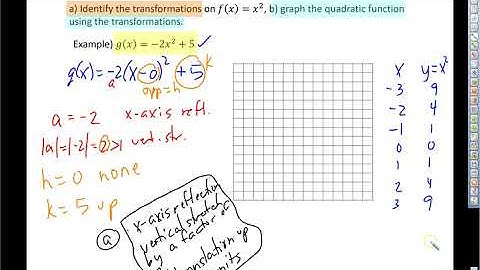 a) Identify the transformations on f(x) = x², b) graph the quadratic function
using the transformations.
Example) g(x) = −2x² + 5 ✓
g(x) = -2(x-0)² + 5
a
opp=h
k
a = -2 x-axis refl.
|a|=|-2|=2>1 vert. str.
h = 0 none
k = 5 up
a
x-axis reflection
vertical stretch
by a factor of
translation up
units
x y=x²
-3 9
-2 4
-1 1
0 0
1 1
2 4
3 9